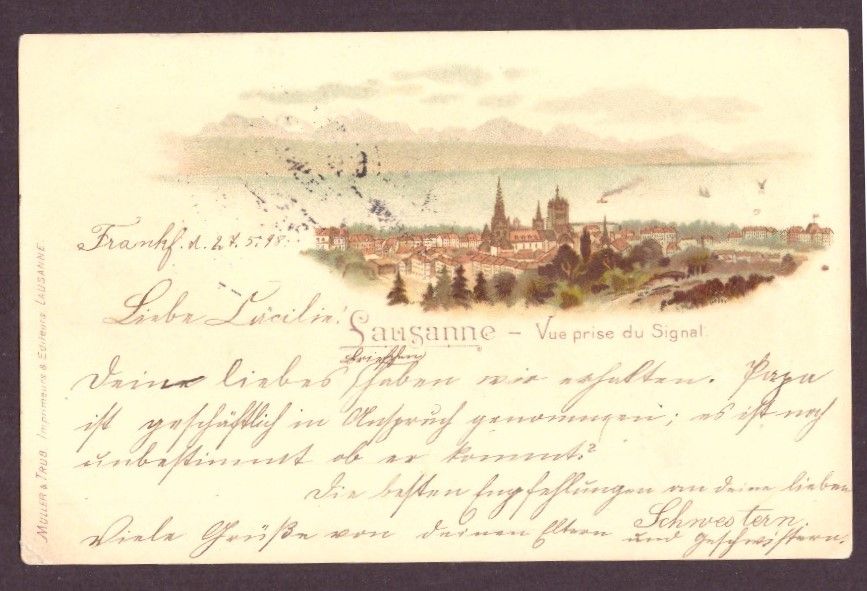 Frankf. d. 27.5.98.
Liebe Cäcilie!
Lausanne – Vue prise du Signal.
Deine liebes briefchen haben wir erhalten. Papa
ist geschäftlich in Anspruch genommen; es ist noch
unbestimmt ob er kommt?
Die besten Empfehlungen an deine lieben
Schwestern.
Viele Grüße von deinen Eltern und Geschwistern.
MÜLLER & TRÜB. Imprimeurs & Editeurs. LAUSANNE.